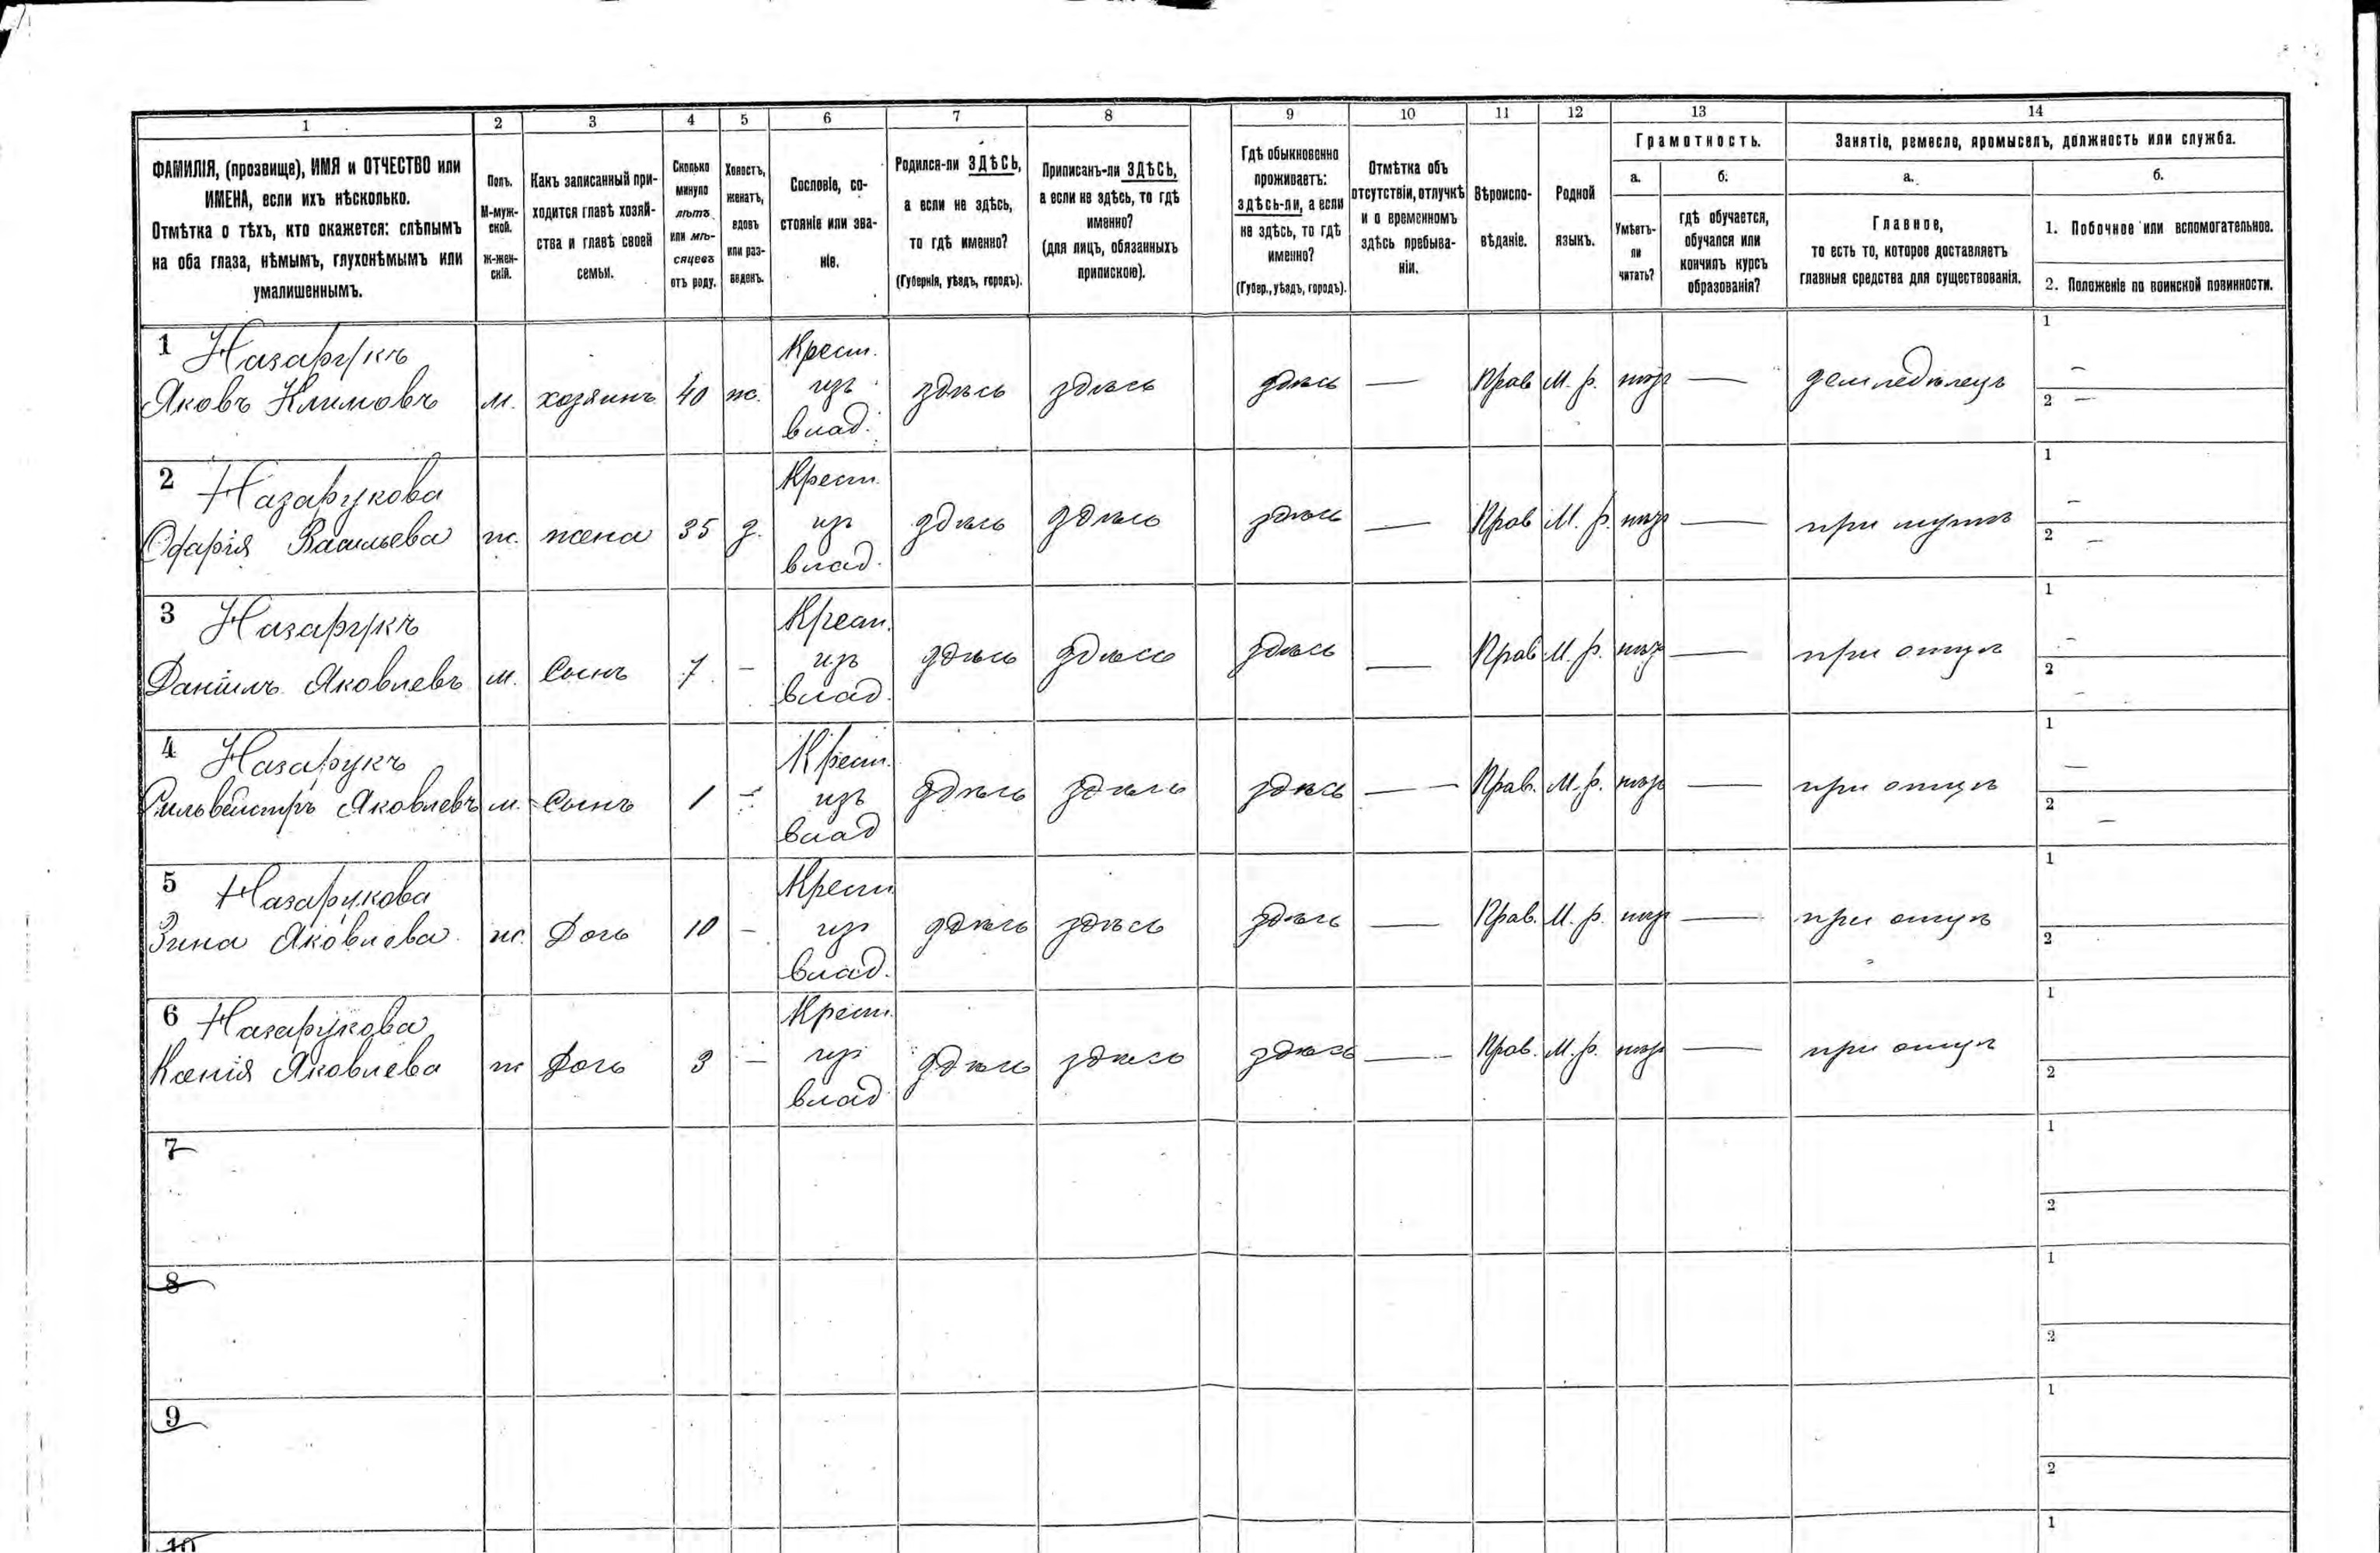 1
2
3
4
5
6
7
8
9
10
11
12
13
14
ФАМИЛІЯ, (прозвище), ИМЯ и ОТЧЕСТВО или
ИМЕНА, если ихъ нѣсколько.
Отмѣтка о тѣхъ, кто окажется: слѣпымъ
на оба глаза, нѣмымъ, глухонѣмымъ или
умалишеннымъ.
Полъ.
М-муж-
ской.
Ж-жен-
скій.
Какъ записанный при-
ходится главѣ хозяй-
ства и главѣ своей
семьи.
Сколько
минуло
лѣтъ
или мѣ-
сяцевъ
отъ роду.
Холостъ,
женатъ,
вдовъ
или раз-
веденъ.
Сословіе, со-
стояніе или зва-
ніе.
Родился-ли ЗДѢСЬ,
а если не здѣсь,
то гдѣ именно?
(Губернія, уѣздъ, городъ).
Приписанъ-ли ЗДѢСЬ,
а если не здѣсь, то гдѣ
именно?
(для лицъ, обязанныхъ
припискою).
Гдѣ обыкновенно
проживаетъ:
здѣсь-ли, а если
не здѣсь, то гдѣ
именно?
(Губер., уѣздъ, городъ).
Отмѣтка объ
отсутствіи, отлучкѣ
и о временномъ
здѣсь пребыва-
ніи.
Вѣроиспо-
вѣданіе.
Родной
языкъ.
Грамотность.
а.
б.
Умѣетъ-
ли
читать?
гдѣ обучается,
обучался или
кончилъ курсъ
образованія?
Занятіе, ремесло, промыселъ, должность или служба.
а.
б.
Главное,
то есть то, которое доставляетъ
главныя средства для существованія.
1. Побочное или вспомогательное.
2. Положеніе по воинской повинности.
1 Назарукъ
Яковъ Климовъ м. хозяинъ 40 ж. Крест. изъ влад. здѣсь здѣсь здѣсь — Прав М. р. нѣтъ — земледѣлецъ 1 — 2 —
2 Назарукова
Васильева ж. жена 35 з. Крест. изъ влад. здѣсь здѣсь здѣсь — Прав М. р. нѣтъ — при мужѣ 1 — 2 —
3 Назарукъ
Даніилъ Яковлевъ м. Сынъ 7 — Крест. изъ влад. здѣсь здѣсь здѣсь — Прав М. р. нѣтъ — при отцѣ 1 — 2 —
4 Назарукъ
Сильвестръ Яковлевъ м. Сынъ 1 — Крест. изъ влад здѣсь здѣсь здѣсь — Прав. М. р. нѣтъ — при отцѣ 1 — 2 —
5 Назарукова
Зина Яковлева ж. Дочь 10 — Крест изъ влад. здѣсь здѣсь здѣсь — Прав. М. р. нѣтъ — при отцѣ 1 2
6 Назарукова
Ксенія Яковлева ж Дочь 3 — Крест. изъ влад здѣсь здѣсь здѣсь — Прав. М. р. нѣтъ — при отцѣ 1 2
7 1 2
8 1 2
9 1 2
10 1